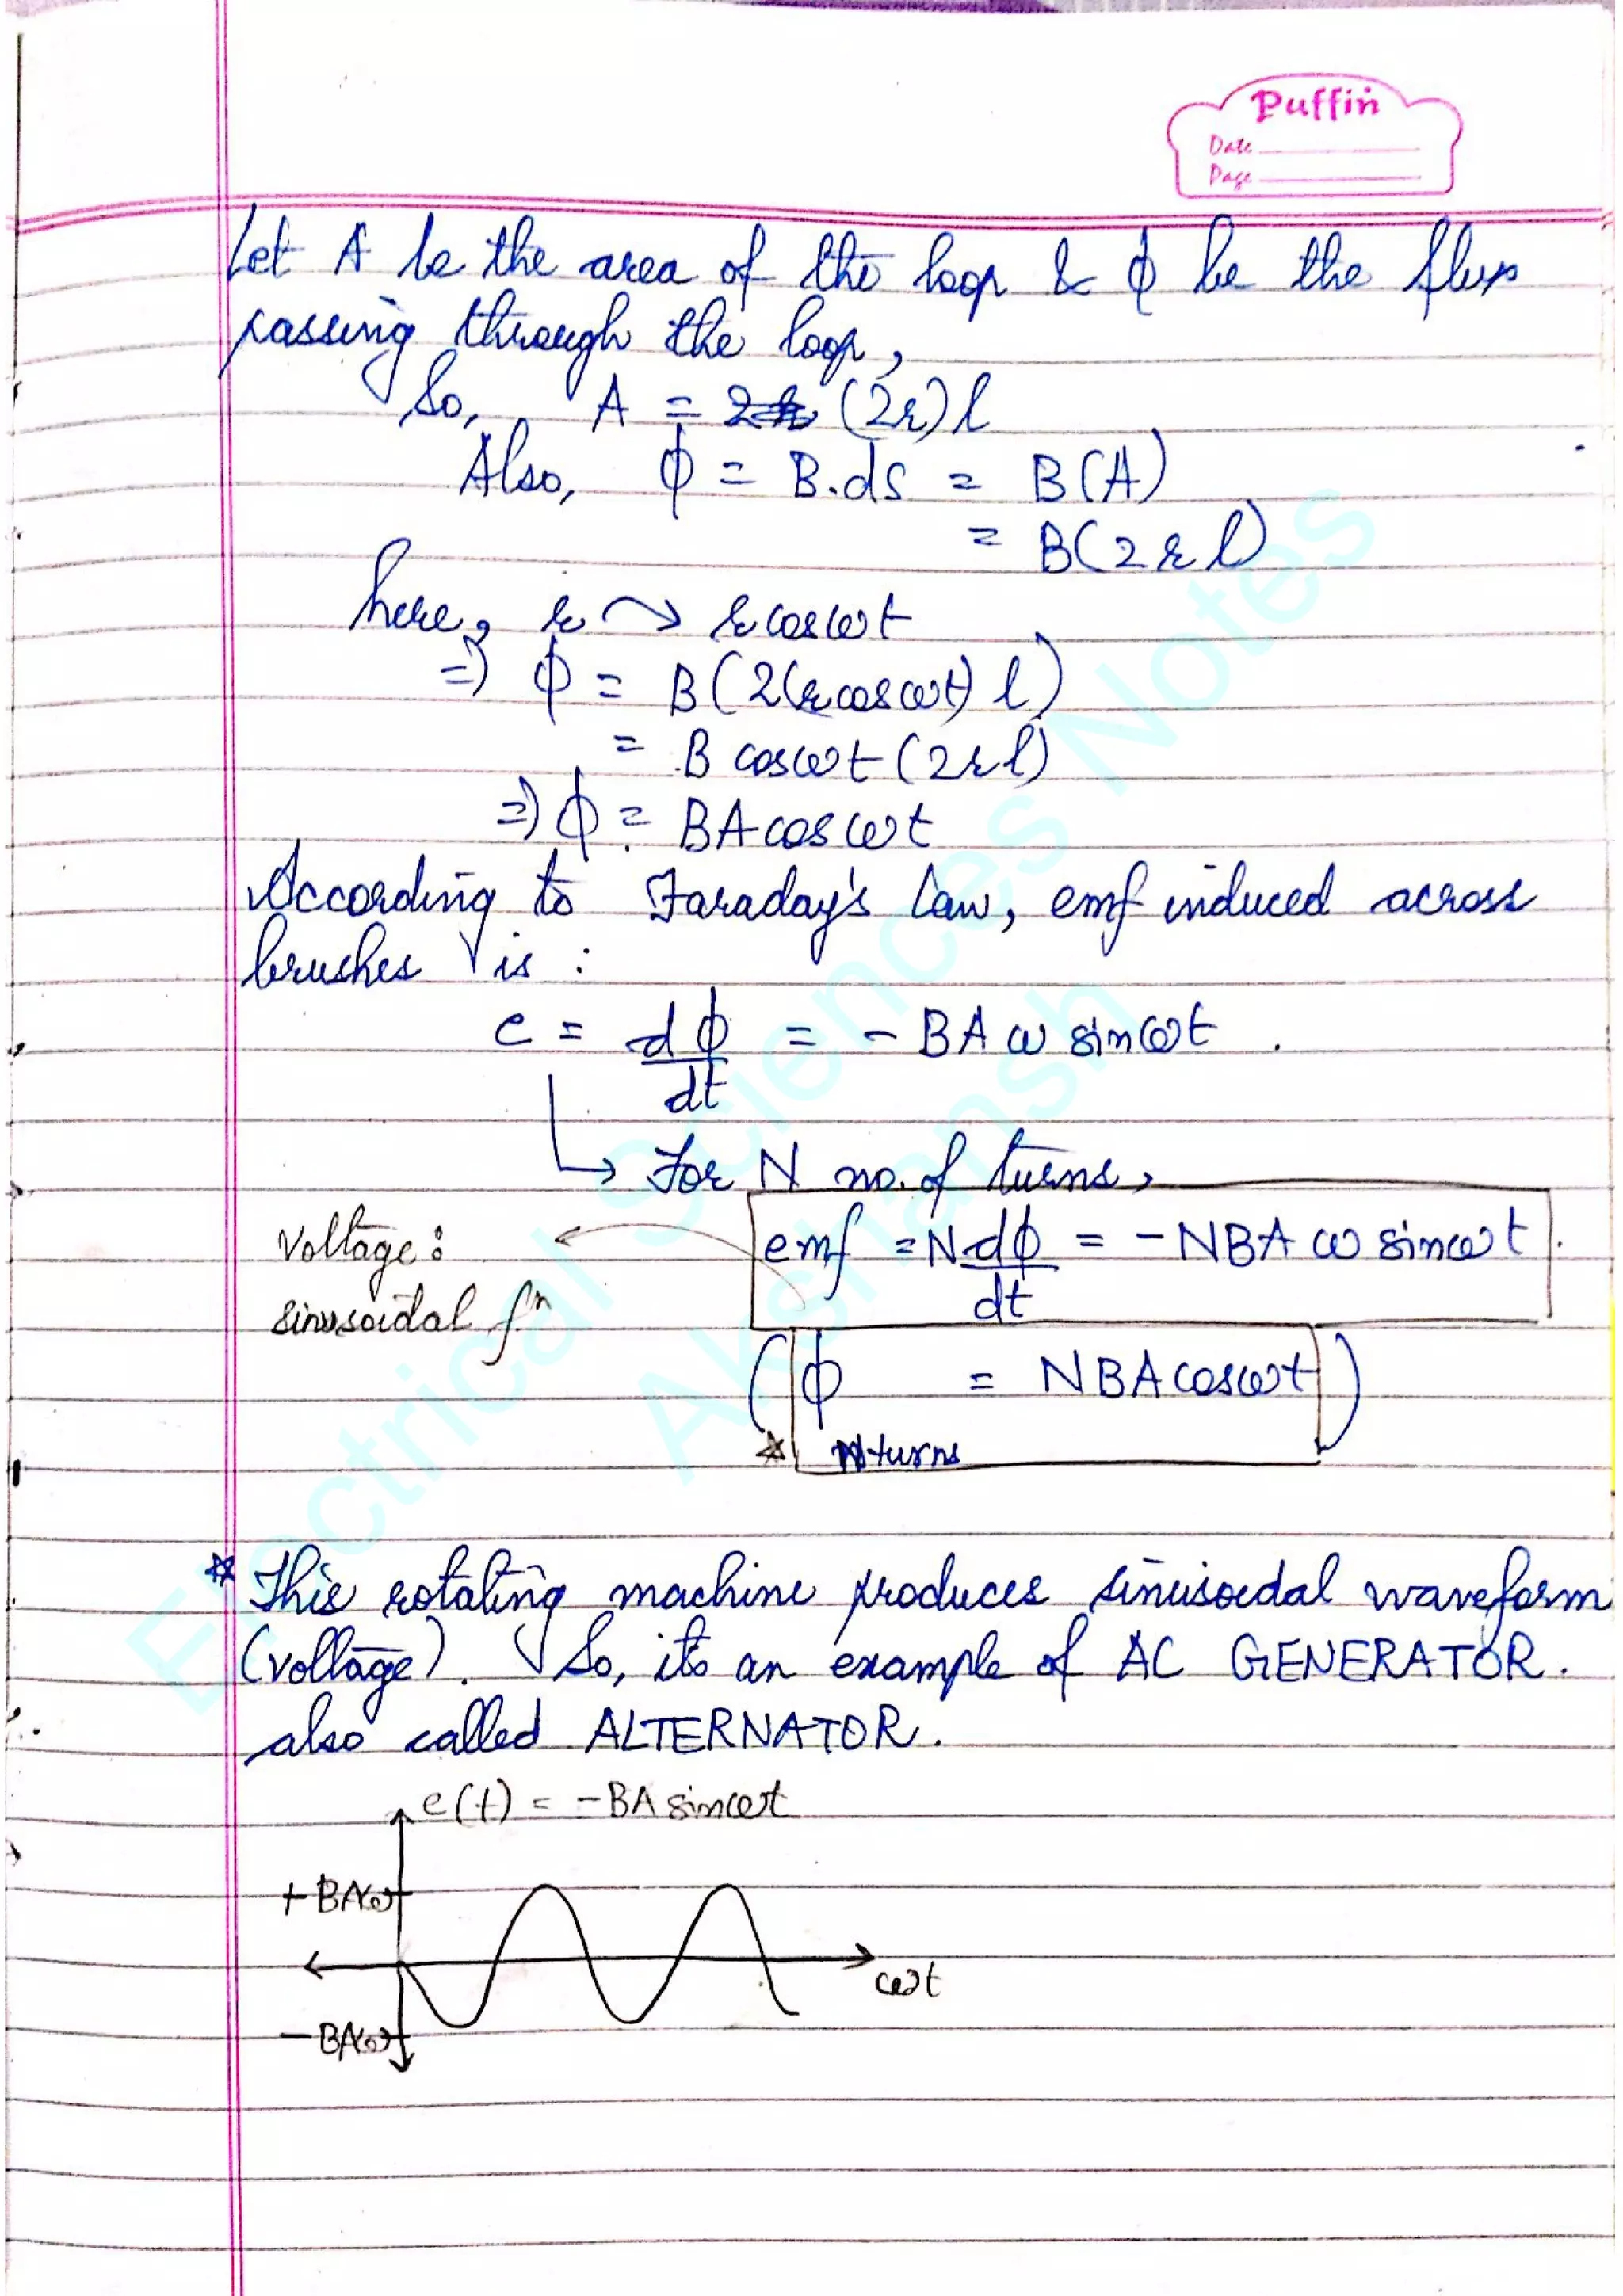 Puffin
Date
Page
Let A be the area of the loop & ϕ be the flux
passing through the loop,
So, A = (2r)l
Also, ϕ = B.ds = B(A)
= B(2rl)
here, r ⤳ r cosωt
⇒ ϕ = B(2(r cosωt) l)
= B cosωt (2rl)
⇒ ϕ = BA cosωt
According to Faraday's Law, emf induced across
brushes is :
e = dϕ/dt = - BA ω sinωt .
↳ For N no. of turns,
Voltage : emf = N dϕ/dt = - NBA ω sinωt .
sinusoidal fⁿ
( ϕ = NBA cosωt )
☆ N turns
☆ This rotating machine produces sinusoidal waveform
(voltage). So, its an example of AC GENERATOR.
also called ALTERNATOR.
e(t) = - BA sinωt
+ BAω
ωt
- BAω
Electrical Sciences Notes
Akshansh